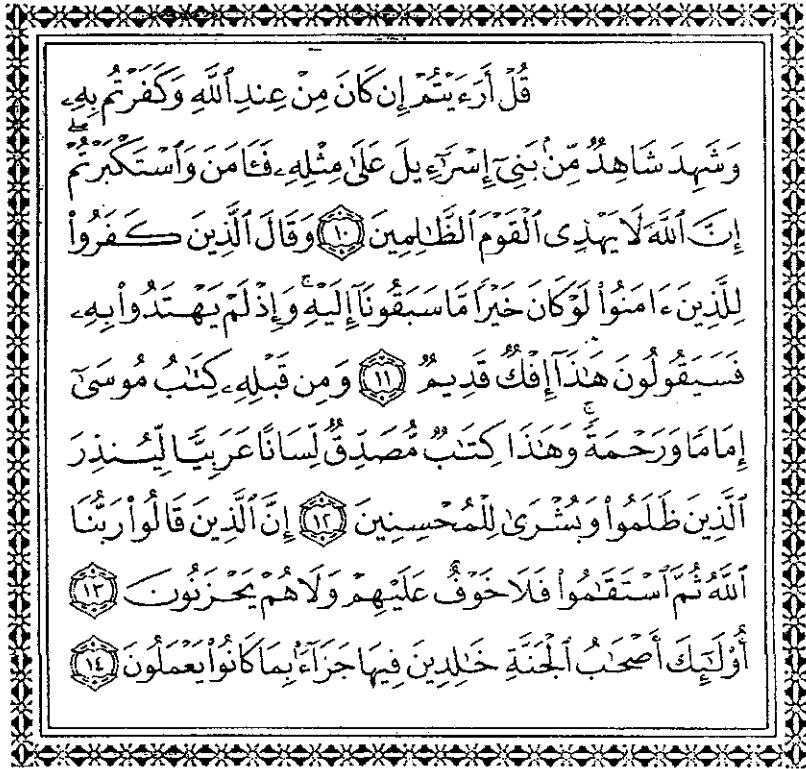 قُلْ أَرَءَيْتُمْ إِن كَانَ مِنْ عِندِ ٱللَّهِ وَكَفَرْتُم بِهِۦ
وَشَهِدَ شَاهِدٌ مِّنۢ بَنِىٓ إِسْرَٰٓءِيلَ عَلَىٰ مِثْلِهِۦ فَـَٔامَنَ وَٱسْتَكْبَرْتُمْ ۖ
إِنَّ ٱللَّهَ لَا يَهْدِى ٱلْقَوْمَ ٱلظَّـٰلِمِينَ ١٠ وَقَالَ ٱلَّذِينَ كَفَرُوا۟
لِلَّذِينَ ءَامَنُوا۟ لَوْ كَانَ خَيْرًا مَّا سَبَقُونَآ إِلَيْهِ ۚ وَإِذْ لَمْ يَهْتَدُوا۟ بِهِۦ
فَسَيَقُولُونَ هَـٰذَآ إِفْكٌ قَدِيمٌ ١١ وَمِن قَبْلِهِۦ كِتَـٰبُ مُوسَىٰٓ
إِمَامًا وَرَحْمَةً ۚ وَهَـٰذَا كِتَـٰبٌ مُّصَدِّقٌ لِّسَانًا عَرَبِيًّا لِّيُنذِرَ
ٱلَّذِينَ ظَلَمُوا۟ وَبُشْرَىٰ لِلْمُحْسِنِينَ ١٢ إِنَّ ٱلَّذِينَ قَالُوا۟ رَبُّنَا
ٱللَّهُ ثُمَّ ٱسْتَقَـٰمُوا۟ فَلَا خَوْفٌ عَلَيْهِمْ وَلَا هُمْ يَحْزَنُونَ ١٣
أُو۟لَـٰٓئِكَ أَصْحَـٰبُ ٱلْجَنَّةِ خَـٰلِدِينَ فِيهَا جَزَآءًۢ بِمَا كَانُوا۟ يَعْمَلُونَ ١٤